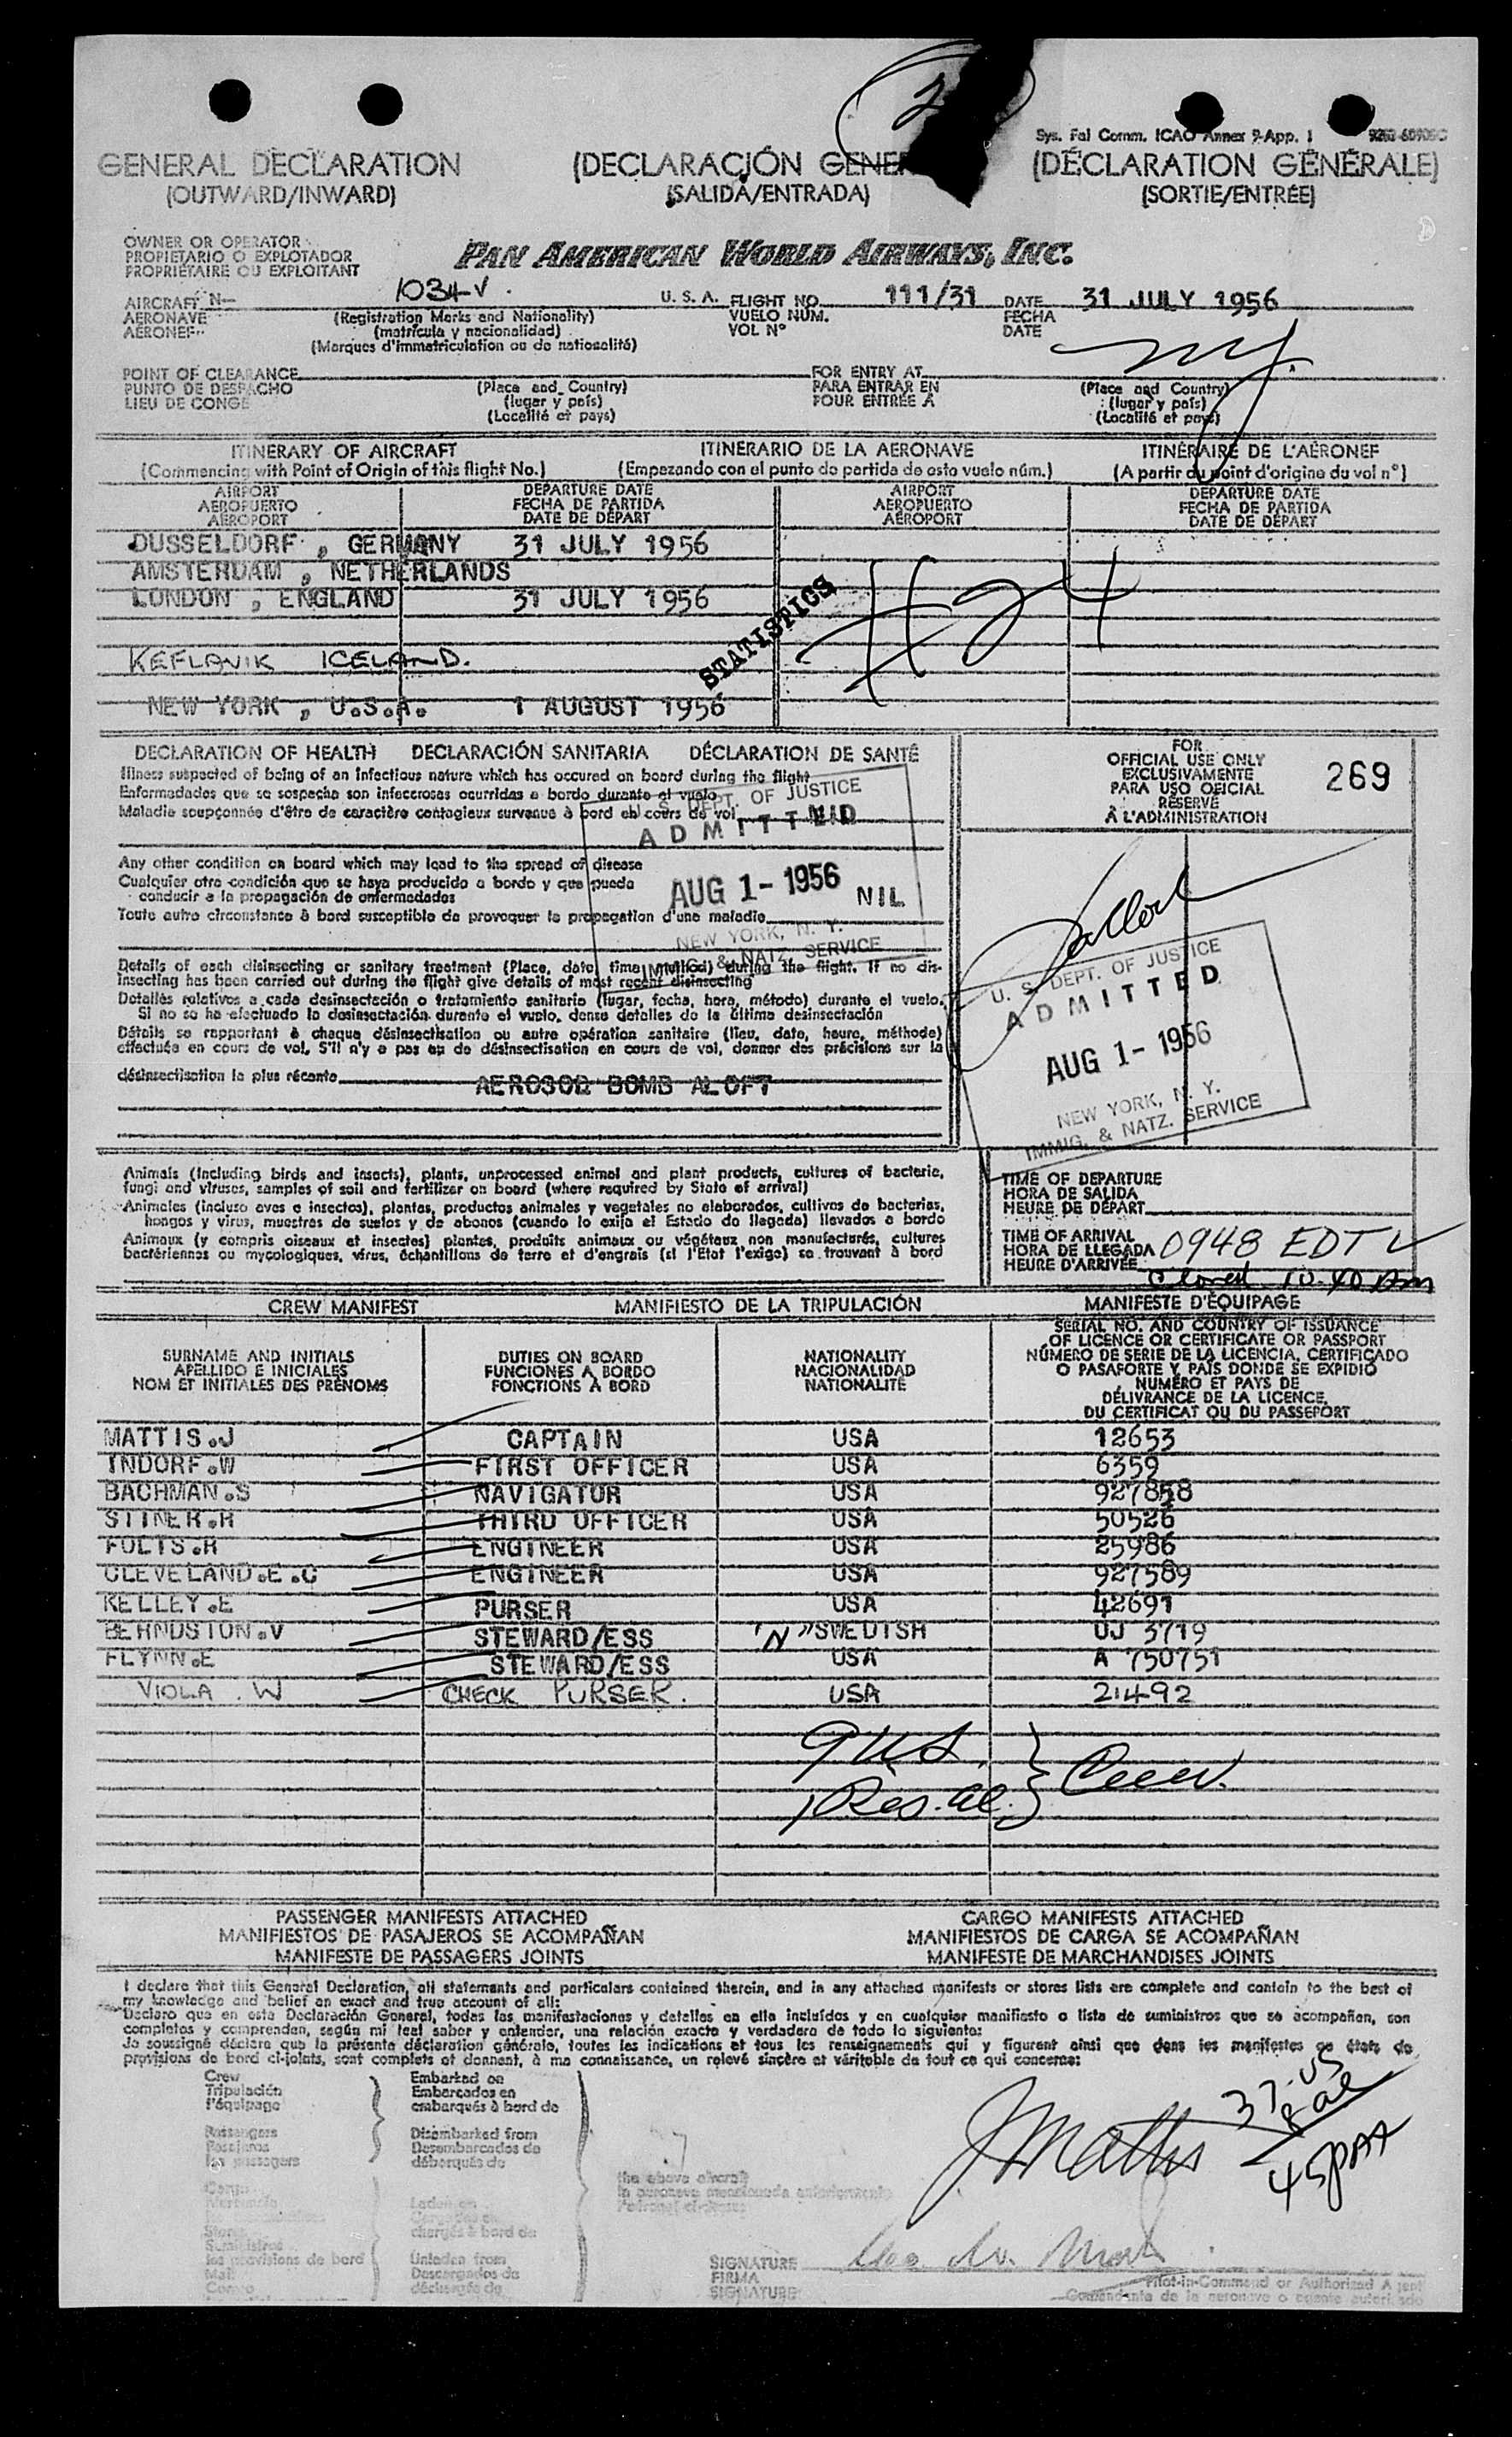 Sys. Fal Comm. ICAO Annex 9-App. 1
GENERAL DECLARATION
(OUTWARD/INWARD)
(DECLARACIÓN GENER
(SALIDA/ENTRADA)
(DÉCLARATION GÉNÉRALE)
(SORTIE/ENTRÉE)
OWNER OR OPERATOR
PROPIETARIO O EXPLOTADOR
PROPRIÉTAIRE OU EXPLOITANT
PAN AMERICAN WORLD AIRWAYS, INC.
AIRCRAFT N- 1034V U. S. A. FLIGHT NO. 111/31 DATE 31 JULY 1956
AERONAVE (Registration Marks and Nationality) VUELO NUM. FECHA
AÉRONEF (matrícula y nacionalidad) VOL N° DATE
(Marques d'immatriculation ou de nationalité)
ny.
POINT OF CLEARANCE FOR ENTRY AT
PUNTO DE DESPACHO (Place and Country) PARA ENTRAR EN (Place and Country)
LIEU DE CONGE (lugar y país) POUR ENTRÉE A (lugar y país)
(Localité et pays) (Localité et pays)
ITINERARY OF AIRCRAFT ITINERARIO DE LA AERONAVE ITINÉRAIRE DE L'AÉRONEF
(Commencing with Point of Origin of this flight No.) (Empezando con el punto de partida de este vuelo núm.) (A partir du point d'origine du vol n°)
AIRPORT DEPARTURE DATE AIRPORT DEPARTURE DATE
AEROPUERTO FECHA DE PARTIDA AEROPUERTO FECHA DE PARTIDA
AÉROPORT DATE DE DÉPART AÉROPORT DATE DE DÉPART
DUSSELDORF , GERMANY 31 JULY 1956
AMSTERDAM , NETHERLANDS
LONDON , ENGLAND 31 JULY 1956
STATISTICS
#24
KEFLAVIK ICELAND.
NEW YORK , U.S.A. 1 AUGUST 1956
DECLARATION OF HEALTH DECLARACIÓN SANITARIA DÉCLARATION DE SANTÉ
Illness suspected of being of an infectious nature which has occured on board during the flight
Enfermedades que se sospecha son infecciosas ocurridas a bordo durante el vuelo
Maladie soupçonnée d'être de caractère contagieux survenue à bord en cours de vol
S. DEPT. OF JUSTICE
ADMITTED
AUG 1- 1956
NEW YORK, N. Y.
IMMIG. & NATZ. SERVICE
Any other condition on board which may lead to the spread of disease
Cualquier otra condición que se haya producido a bordo y que pueda
conducir a la propagación de enfermedades
NIL
Toute autre circonstance à bord susceptible de provoquer la propagation d'une maladie
Details of each disinsecting or sanitary treatment (Place, date, time, method) during the flight. If no dis-
insecting has been carried out during the flight give details of most recent disinsecting
Detalles relativos a cada desinsectación o tratamiento sanitario (lugar, fecha, hora, método) durante el vuelo.
Si no se ha efectuado la desinsectación durante el vuelo, dense detalles de la última desinsectación
Détails se rapportant à chaque désinsectisation ou autre opération sanitaire (lieu, date, heure, méthode)
effectuée en cours de vol. S'il n'y a pas eu de désinsectisation en cours de vol, donner des précisions sur la
désinsectisation la plus récente AEROSOL BOMB ALOFT
FOR
OFFICIAL USE ONLY
EXCLUSIVAMENTE
PARA USO OFICIAL
RÉSERVÉ
À L'ADMINISTRATION
269
U. S. DEPT. OF JUSTICE
ADMITTED
AUG 1- 1956
NEW YORK, N. Y.
IMMIG. & NATZ. SERVICE
Animals (including birds and insects), plants, unprocessed animal and plant products, cultures of bacteria,
fungi and viruses, samples of soil and fertilizer on board (where required by State of arrival)
Animales (incluso aves e insectos), plantas, productos animales y vegetales no elaborados, cultivos de bacterias,
hongos y virus, muestras de suelos y de abonos (cuando lo exija el Estado de llegada) llevados a bordo
Animaux (y compris oiseaux et insectes) plantes, produits animaux ou végétaux non manufacturés, cultures
bactériennes ou mycologiques, virus, échantillons de terre et d'engrais (si l'Etat l'exige) se trouvant à bord
TIME OF DEPARTURE
HORA DE SALIDA
HEURE DE DÉPART
TIME OF ARRIVAL
HORA DE LLEGADA 0948 EDT
HEURE D'ARRIVÉE
Closed 10.40 Am
CREW MANIFEST MANIFIESTO DE LA TRIPULACIÓN MANIFESTE D'ÉQUIPAGE
SURNAME AND INITIALS
APELLIDO E INICIALES
NOM ET INITIALES DES PRÉNOMS
DUTIES ON BOARD
FUNCIONES A BORDO
FONCTIONS À BORD
NATIONALITY
NACIONALIDAD
NATIONALITÉ
SERIAL NO. AND COUNTRY OF ISSUANCE
OF LICENCE OR CERTIFICATE OR PASSPORT
NÚMERO DE SERIE DE LA LICENCIA, CERTIFICADO
O PASAPORTE Y PAÍS DONDE SE EXPIDIÓ
NUMÉRO ET PAYS DE
DÉLIVRANCE DE LA LICENCE,
DU CERTIFICAT OU DU PASSEPORT
MATTIS.J CAPTAIN USA 12653
INDORF.W FIRST OFFICER USA 6359
BACHMAN.S NAVIGATOR USA 927858
STINER.H THIRD OFFICER USA 50526
FOLTS.H ENGINEER USA 25986
CLEVELAND.E.C ENGINEER USA 927589
KELLEY.E PURSER USA 42691
BERNDSTON.V STEWARD/ESS "N" SWEDISH UJ 3719
FLYNN.E STEWARD/ESS USA A 750751
VIOLA. W CHECK PURSER. USA 21492
9 US
1 Res. al. } Crew.
PASSENGER MANIFESTS ATTACHED
MANIFIESTOS DE PASAJEROS SE ACOMPAÑAN
MANIFESTE DE PASSAGERS JOINTS
CARGO MANIFESTS ATTACHED
MANIFIESTOS DE CARGA SE ACOMPAÑAN
MANIFESTE DE MARCHANDISES JOINTS
I declare that this General Declaration, all statements and particulars contained therein, and in any attached manifests or stores lists are complete and contain to the best of
my knowledge and belief an exact and true account of all:
Declaro que en esta Declaración General, todas las manifestaciones y detalles en ella incluídos y en cualquier manifiesto o lista de suministros que se acompañan, son
completos y comprenden, según mi leal saber y entender, una relación exacta y verdadera de todo lo siguiente:
Je soussigné déclare que la présente déclaration générale, toutes les indications et tous les renseignements qui y figurent ainsi que dans les manifestes ou états de
provisions de bord ci-joints, sont complets et donnent, à ma connaissance, un relevé sincère et véritable de tout ce qui concerne:
Crew
Tripulación
l'équipage
Embarked on
Embarcados en
embarqués à bord de
Passengers
Pasajeros
les passagers
Disembarked from
Desembarcados de
débarqués de
the above aircraft
Cargo
Laden on
chargés à bord de
Stores
Suministros
les provisions de bord
Mail
Correo
Unladen from
Descargados de
déchargés de
37-US
8 al
45 PAX
J Mattis
SIGNATURE
FIRMA
SIGNATURE
Pilot-in-Command or Authorized Agent
Comandante de la aeronave o agente autorizado